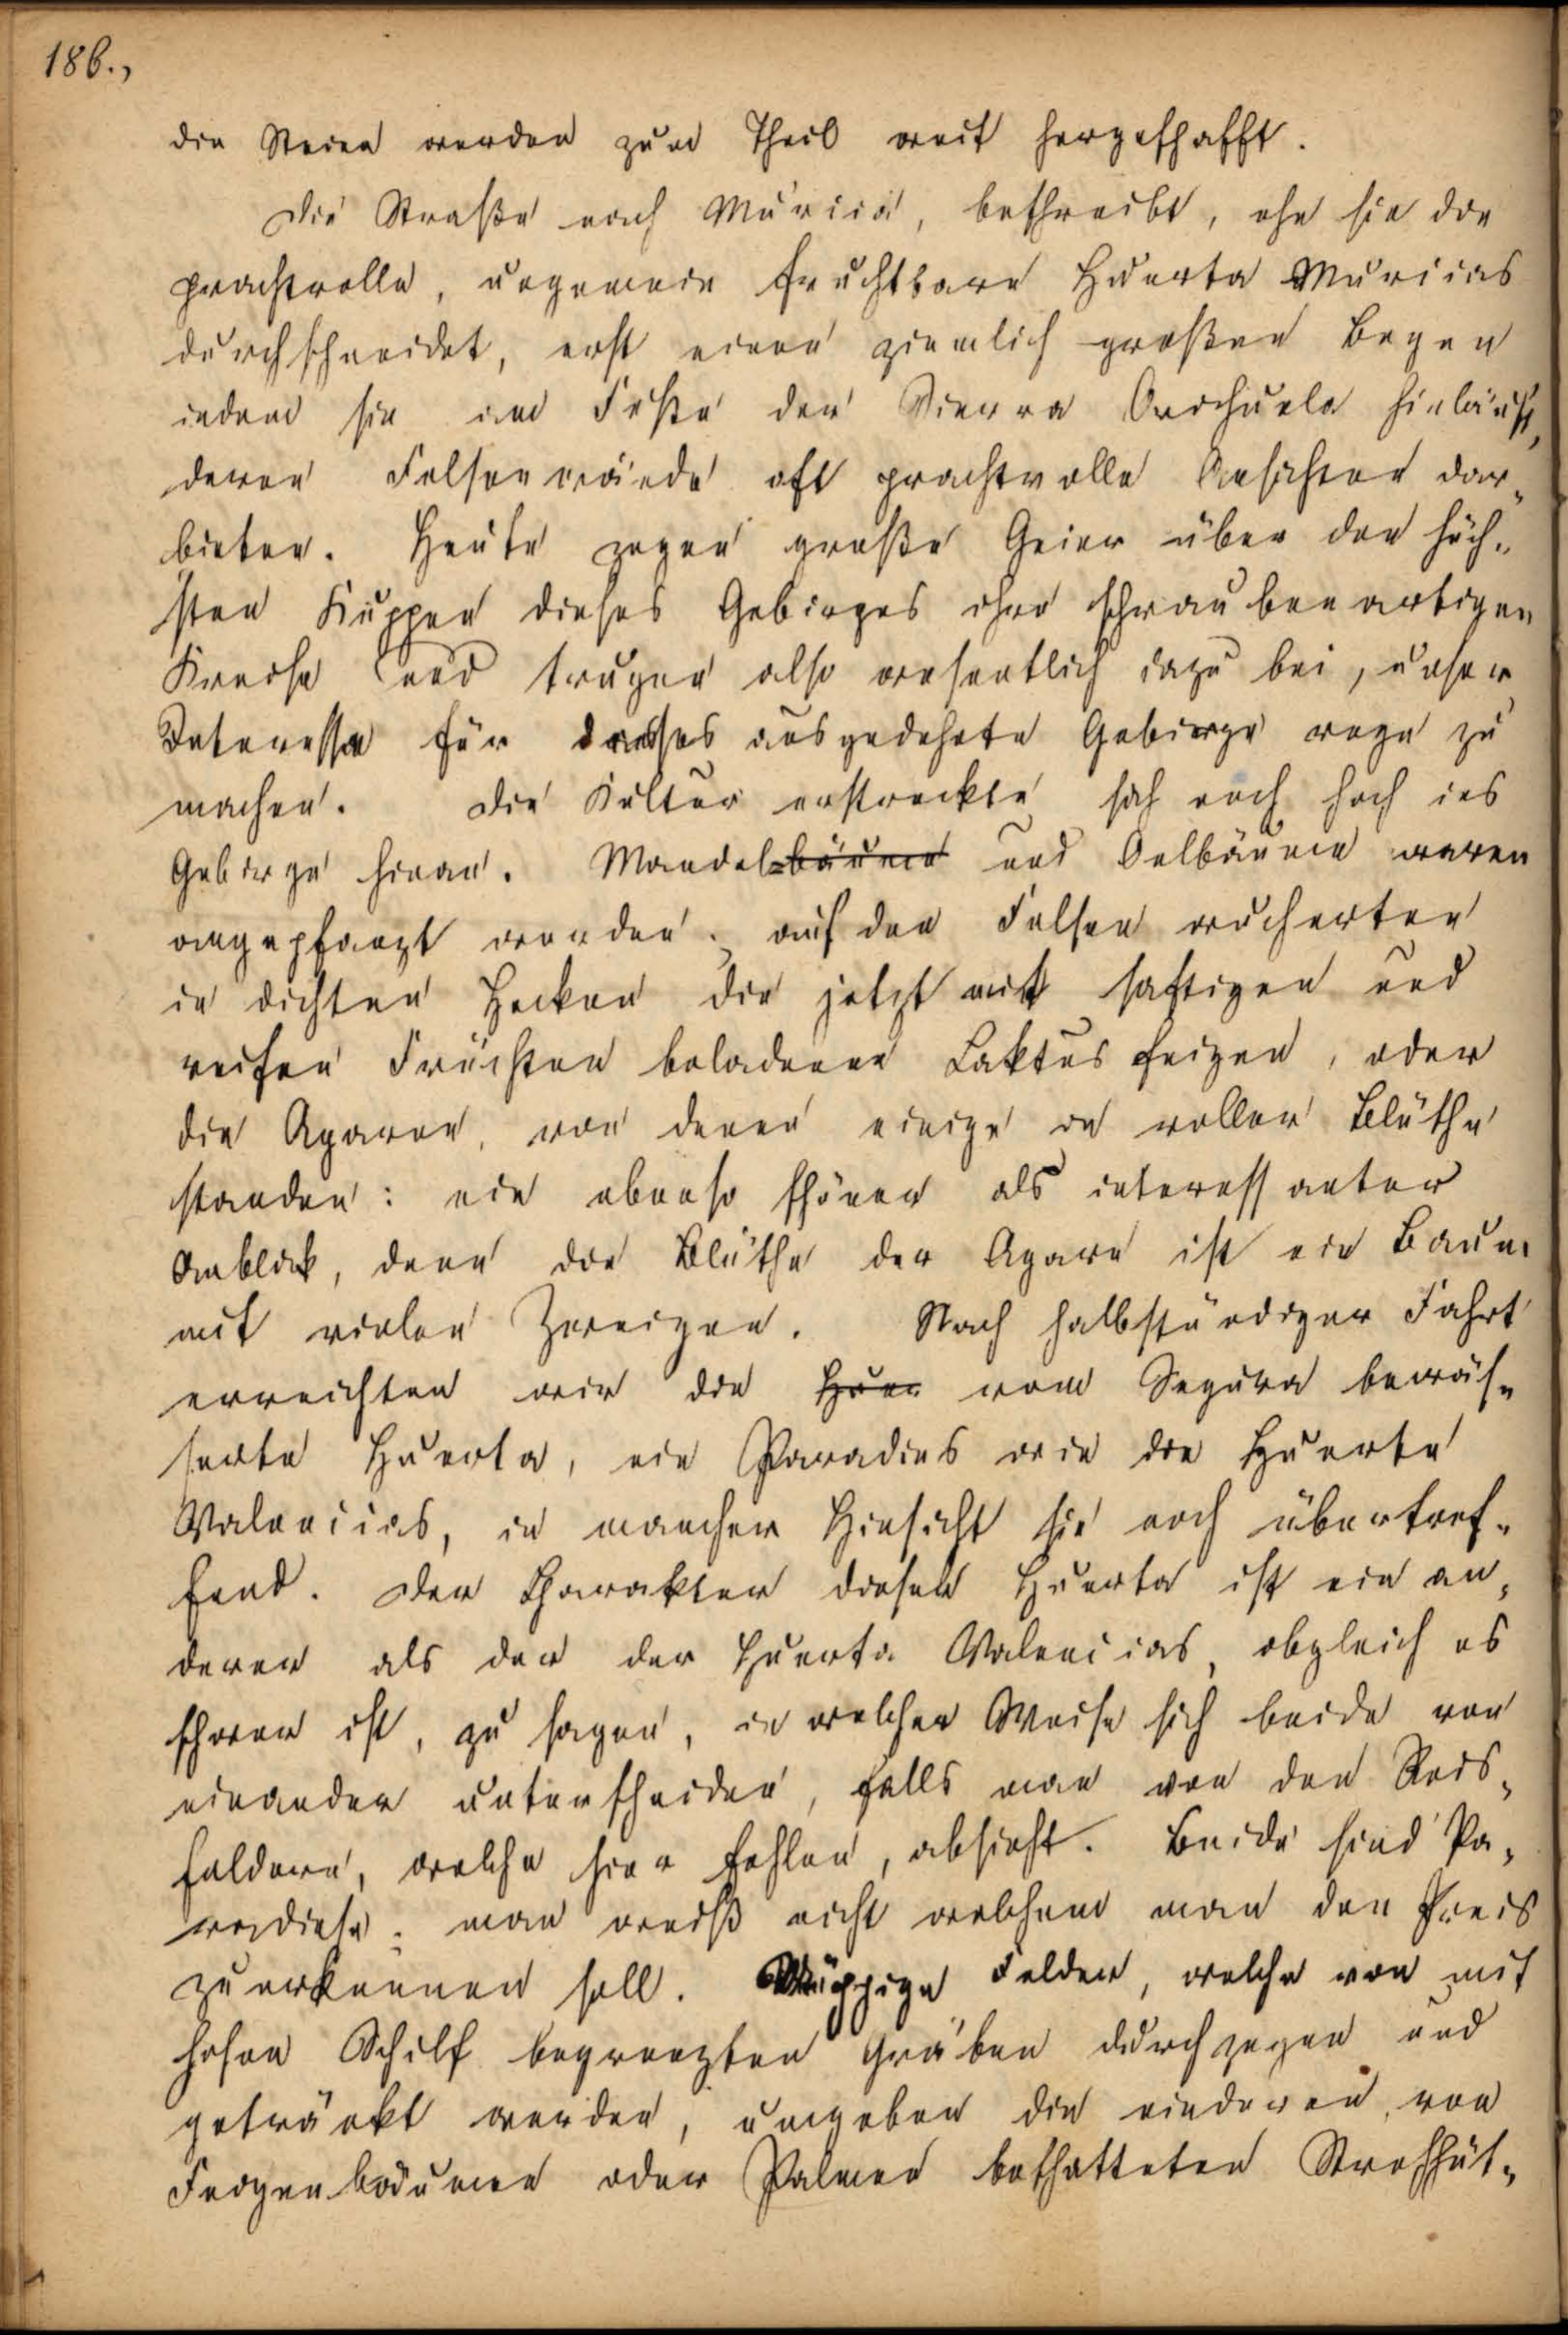 186.,
die Steine werden zum Theil weit hergeschafft.
Die Straße nach Murcia, beschreibt, ehe sie die
prachtvolle, ungemein fruchtbare Huerta Murcias
durchschneidet, erst einen ziemlich großen Bogen
indem sie am Fuße der Sierra Orihuela hinläuft,
deren Felsenwände oft prachtvolle Ansichten dar-
bieten. Heute zogen große Geier über den höch-
sten Kuppen dieses Gebirges ihre schraubenartigen
Kreise und trugen also wesentlich dazu bei, unser
Interesse für dieses ausgedehnte Gebirge rege zu
machen. Die Kultur erstreckte sich noch hoch ins
Gebirge hinan. Mandel-bäume und Oelbäume waren
angepflanzt worden; auf den Felsen wucherten
in dichten Hecken die jetzt mit saftigen und
reifen Früchten beladenen Caktusfeigen, oder
die Agaven, von denen einige in voller Blüthe
standen: ein ebenso schöner als interessanter
Anblick, denn die Blüthe der Agave ist ein Baum
mit vielen Zweigen. Nach halbstündiger Fahrt
erreichten wir die Huer vom Segura bewäs-
serte Huerta, ein Paradies wie die Huerta
Valencias, in mancher Hinsicht sie noch übertref-
fend. Der Charakter dieser Huerta ist ein an-
derer als der der Huerta Valencias, obgleich es
schwer ist, zu sagen, in welcher Weise sich beide von
einander unterscheiden, falls man von den Reis-
feldern, welche hier fehlen, absieht. Beide sind Pa-
radiese; man weiß nicht welchem man den Preis
zuerkennen soll. Üppige Felder, welche von mit
hohem Schilf begrenzten Gräben durchzogen und
getränkt werden, umgeben die niederen, von
Feigenbäumen oder Palmen beschatteten Strohhüt-